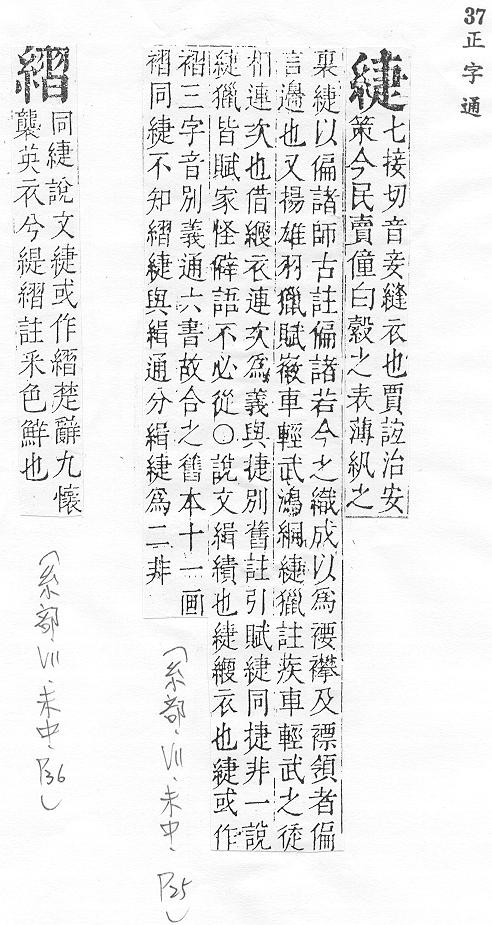 37正字通
緁
七接切音妾縫衣也賈誼治安
策今民賣僮白縠之表薄紈之
裏緁以偏諸師古註偏諸若今之織成以爲䙅襻及褾領者偏
言邊也又揚雄羽獵賦徽車輕武鴻絧緁獵註疾車輕武之徒
相連次也借緶衣連次爲義與捷別舊註引賦緁同捷非一說
緁獵皆賦家怪僻語不必從〇說文緝績也緁緶衣也緁或作
褶三字音別義通六書故合之舊本十一画
褶同緁不知縐緁與緝通分緝緁爲二非
（糸部·VII·未中·P25）
縐
同緁說文緁或作縐楚辭九懷
襲英衣兮緹縐註采色鮮也
（糸部·VII·未中·P36）